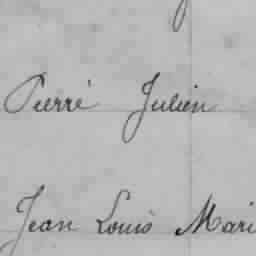 Pierré Julien
Jean Louis Mari